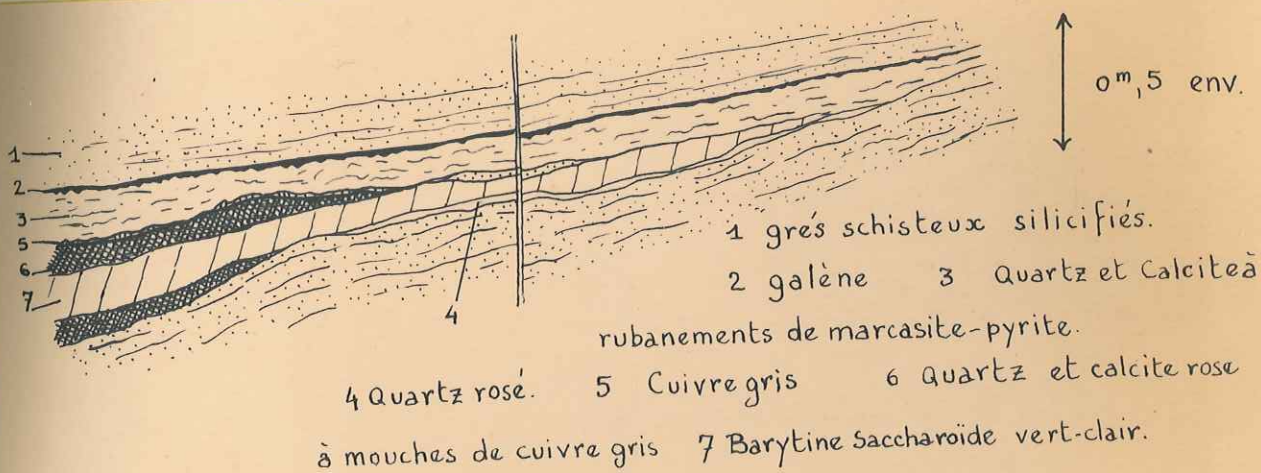 0ᵐ,5 env.
1
2
3
5
6
7
4
1 grés schisteux silicifiés.
2 galène 3 Quartz et Calcite à
rubanements de marcasite-pyrite.
4 Quartz rosé. 5 Cuivre gris 6 Quartz et calcite rose
à mouches de cuivre gris 7 Barytine Saccharoïde vert-clair.